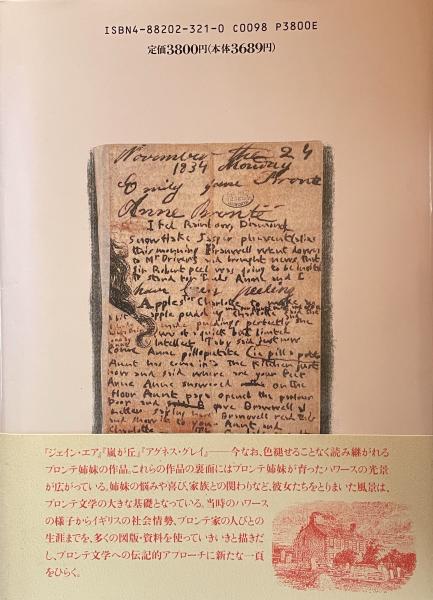 ISBN4-88202-321-0 C0098 P3800E
定価3800円(本体3689円)
November the 24
1834 Monday
Emily Jane Bronte
Anne Brontë
I fed Rainbow, Diamond
Snowflake Jasper pheasent (alias
this morning Branwell went down
to Mr Drivers and brought news that
Sir Robert peel was going to be invited
to stand for Leeds Anne and I
have been peeling
Apples for Charlotte to make
apple pudding Charlotte said
made puddings perfectly she
was of a quick but limted
Intellect Taby said just now
come Anne pillopatate
Aunt has come into the Kitchen just
now and said where are your feet
Anne Anne answered on the
floor Aunt papa opened the parlour
Door and gave Branwell a
letter saying Branwell read this
and show it to your Aunt and
Charlotte
『ジェイン・エア』『嵐が丘』『アグネス・グレイ』――今なお、色褪せることなく読み継がれる
ブロンテ姉妹の作品。これらの作品の裏面にはブロンテ姉妹が育ったハワースの光景
が広がっている。姉妹の悩みや喜び、家族との関わりなど、彼女たちをとりまいた風景は、
ブロンテ文学の大きな基礎となっている。当時のハワース
の様子からイギリスの社会情勢、ブロンテ家の人びとの
生涯までを、多くの図版・資料を使っていきいきと描きだ
し、ブロンテ文学への伝記的アプローチに新たな一頁
をひらく。